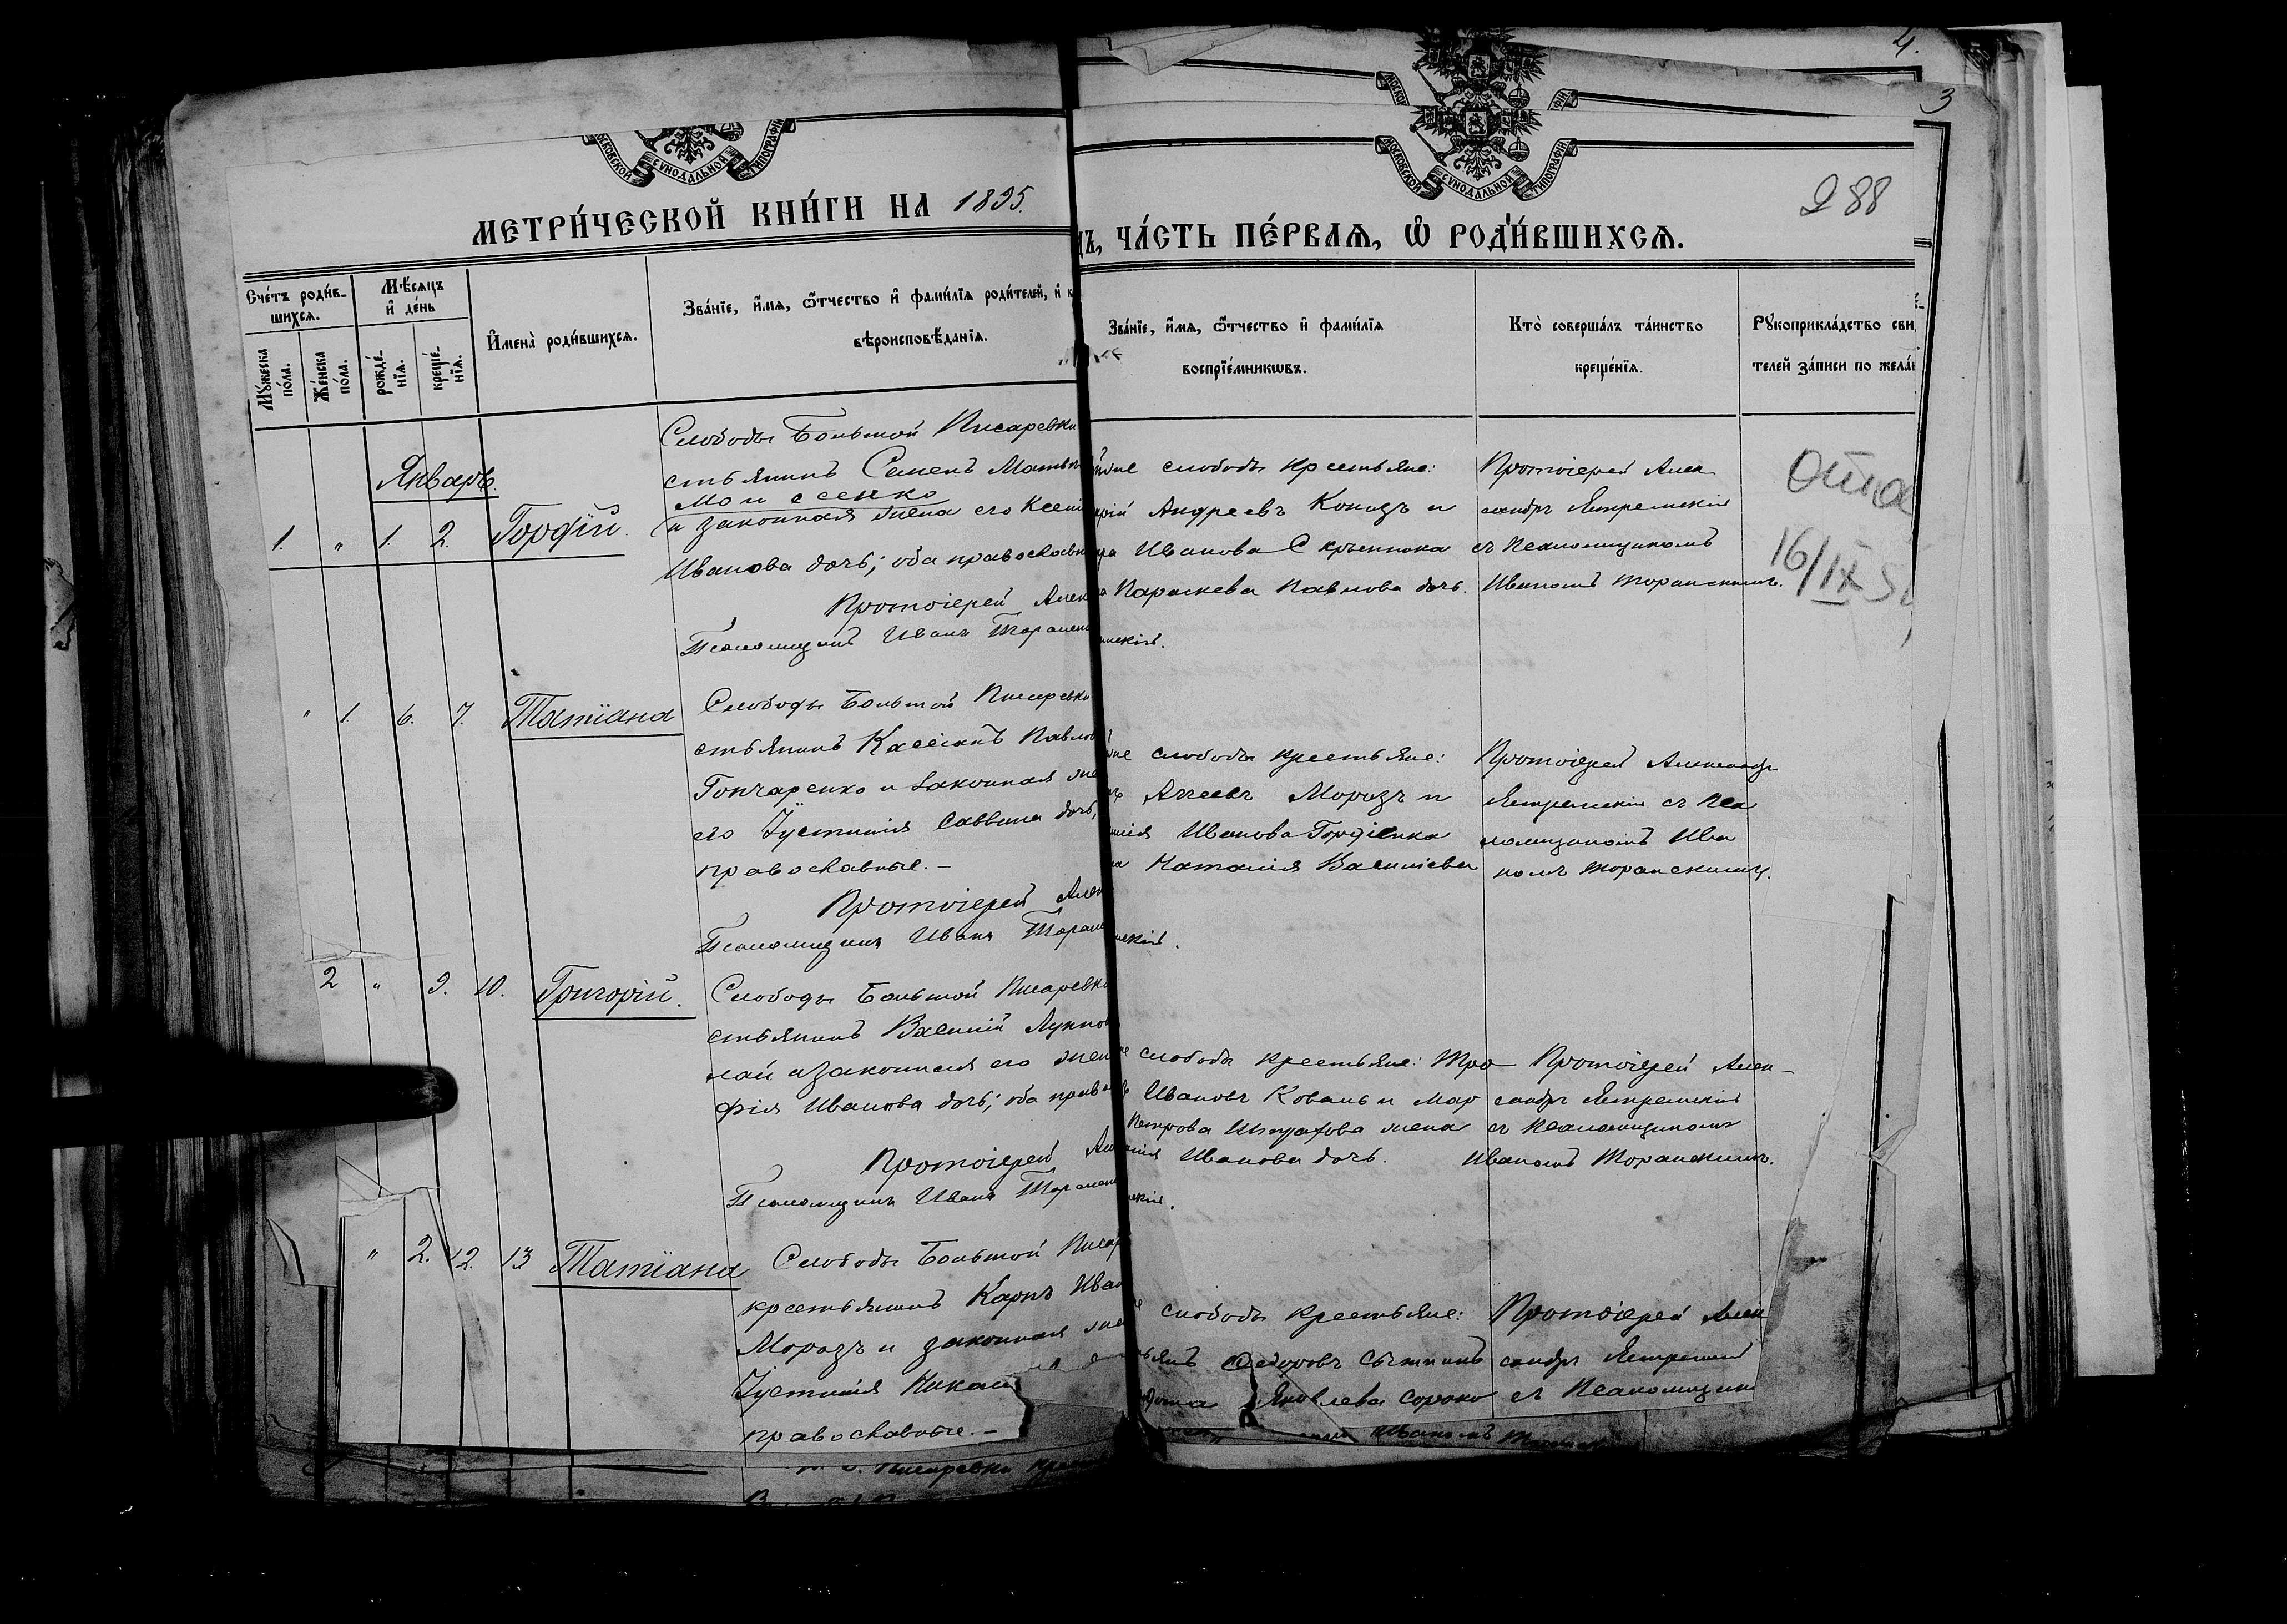 4.
3
МОСКОВСКОЙ СУНОДАЛЬНОЙ ТИПОГРАФІИ
288
МЕТРИ́ЧЕСКОЙ КНИ́ГИ НА 1895.
ЧА́СТЬ ПЕ́РВАѦ, Ѡ РОДИ́ВШИХСѦ.
Сче́тъ роди́в-
шихсѧ.
Мꙋ́жеска по́ла.
Же́нска по́ла.
Мѣ́сѧцъ и де́нь
рожде́-нїѧ.
креще́-нїѧ.
Имена̀ роди́вшихсѧ.
Зва́нїе, и́мѧ, ѻ́тчество и фами́лїѧ роди́телей, и
вѣроисповѣ́данїѧ.
Зва́нїе, и́мѧ, ѻ́тчество и фами́лїѧ
воспрїе́мникѡвъ.
Кто̀ соверша́лъ та́инство
креще́нїѧ.
Рꙋкоприкла́дство сви
телей за́писи по жела
Январь.
1. " 1. 2. Гордій.
Слободы Большой Писаревки
стьянинъ Семенъ
Моисеенко
и законная жена его Ксені
Иванова дочь; оба православн
Протоіерей Алек
Псаломщикъ Иванъ Торанск
слободы крестьяне:
Андреевъ Конозъ и
Иванова
Параскева Павлова дочь.
Протоіерей Алек
сандръ Ястремскій
съ Псаломщикомъ
Иваномъ Торанскимъ.
16/IX
" 1. 6. 7. Татіана
Слободы Большой Писаревки
стьянинъ Кассіанъ Павлов
Гончаренко и законная же
его Іустинія Саввина дочь,
православные. –
Протоіерей Алек
Псаломщикъ Иванъ Торанс
слободы крестьяне:
Морозъ и
Иванова Гордіенка
Наталія Василіева
Протоіерей Александр
Ястремскій съ Пса
ломщикомъ Ива
номъ Торанскимъ.
2 " 9. 10. Григорій.
Слободы Большой Писаревки
стьянинъ Василій
лай и законная его жен
фія Иванова дочь; оба право
Протоіерей Ал
Псаломщикъ Иванъ Торанск
слободы крестьяне: Тро
Ивановъ Коваль и Мар
Петрова жена
Иванова дочь.
Протоіерей Алек-
сандръ Ястремскій
съ Псаломщикомъ
Иваномъ Торанскимъ.
" 2. 12. 13 Татіана
Слободы Большой Писар
крестьянинъ Карпъ Иван
Морозъ и законная же
Іустинія
православные. –
слободы крестьяне:
Ѳедоровъ
Яковлева Сороко
Протоіерей Алек
сандръ Ястремскій
съ Псаломщик
Иваномъ
Писаревки